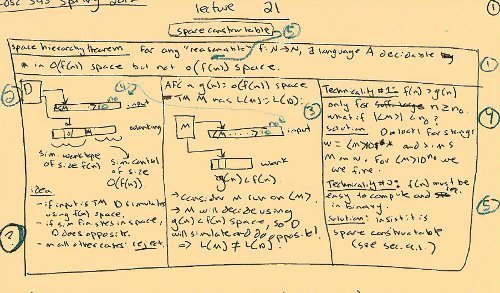 COSC 545 Spring 2012
lecture 21
①
space constructable
⑤
space hierarchy theorem: For any "reasonable" f: N→N, ∃ language A decidable
* in O(f(n)) space but not o(f(n)) space.
①
②
D
<M> 10^n0
input
working
sim. worktape of size f(n)
sim control of size O(f(n)).
idea:
- if input is TM D simulates
using f(n) space.
- if sim finishes in space,
D does opposite.
- in all other cases: reject.
AFC ∃ g(n): o(f(n)) space
TM M has L(M) = L(D).
③
④
M
<M> 10^n0
input
work
g(n) < f(n).
→ consider M run on <M>
→ M will decide using
g(n) < f(n) space, so D
will simulate and do opposite!
⇒ L(M) ≠ L(D).
Technicality #1: f(n) > g(n)
only for n ≥ n0.
what if |<M>| < n0?
solution: D looks for strings
w = <M>10* and sims
M on w. For <M>10^n0 we
are fine.
④
Technicality #2: f(n) must be
easy to compute and
in binary.
solution: Insist it is
space constructable
(see sec. 9.1.)
⑤